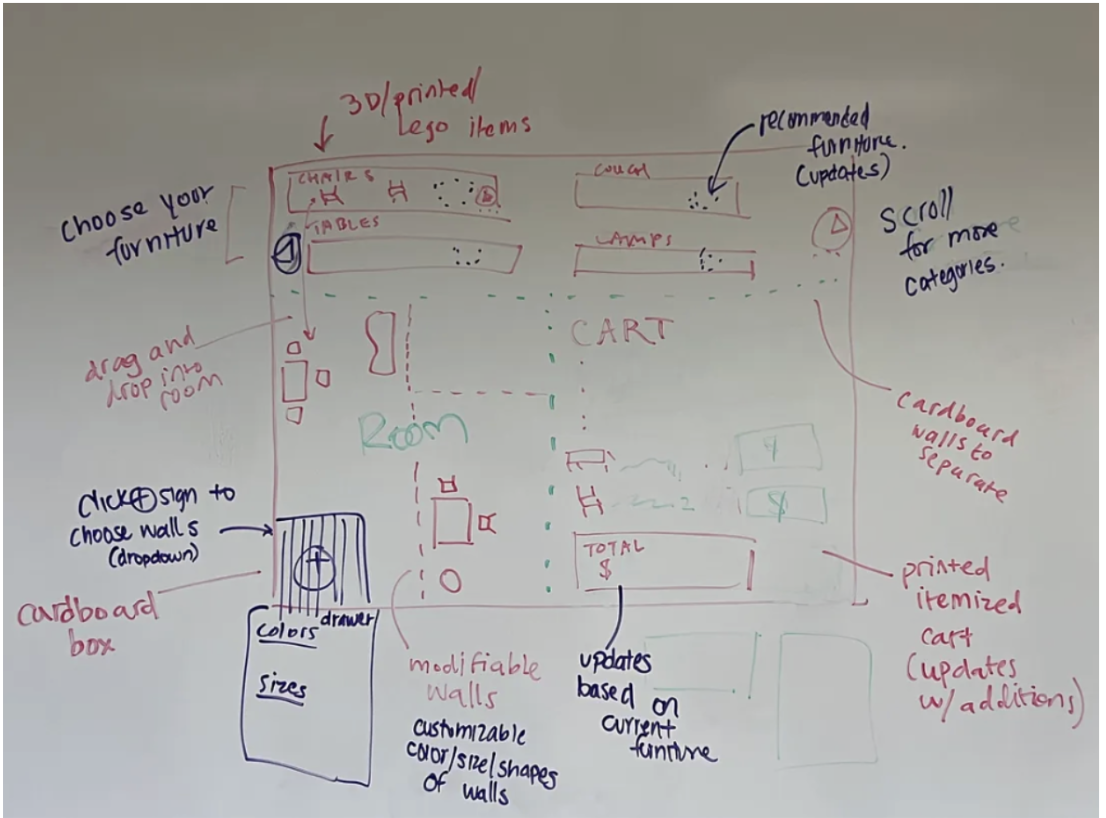 3D/printed/
Lego items
recommended
furniture.
(updates)
choose your
furniture
CHAIRS
TABLES
LAMPS
scroll
for more
categories.
drag and
drop into
room
CART
ROOM
cardboard
walls to
separate
click + sign to
choose walls
(dropdown)
$
$
TOTAL
$
cardboard
box
drawer
colors
sizes
modifiable
walls
customizable
color/size/shapes
of walls
updates
based on
current
furniture
printed
itemized
cart
(updates
w/additions)